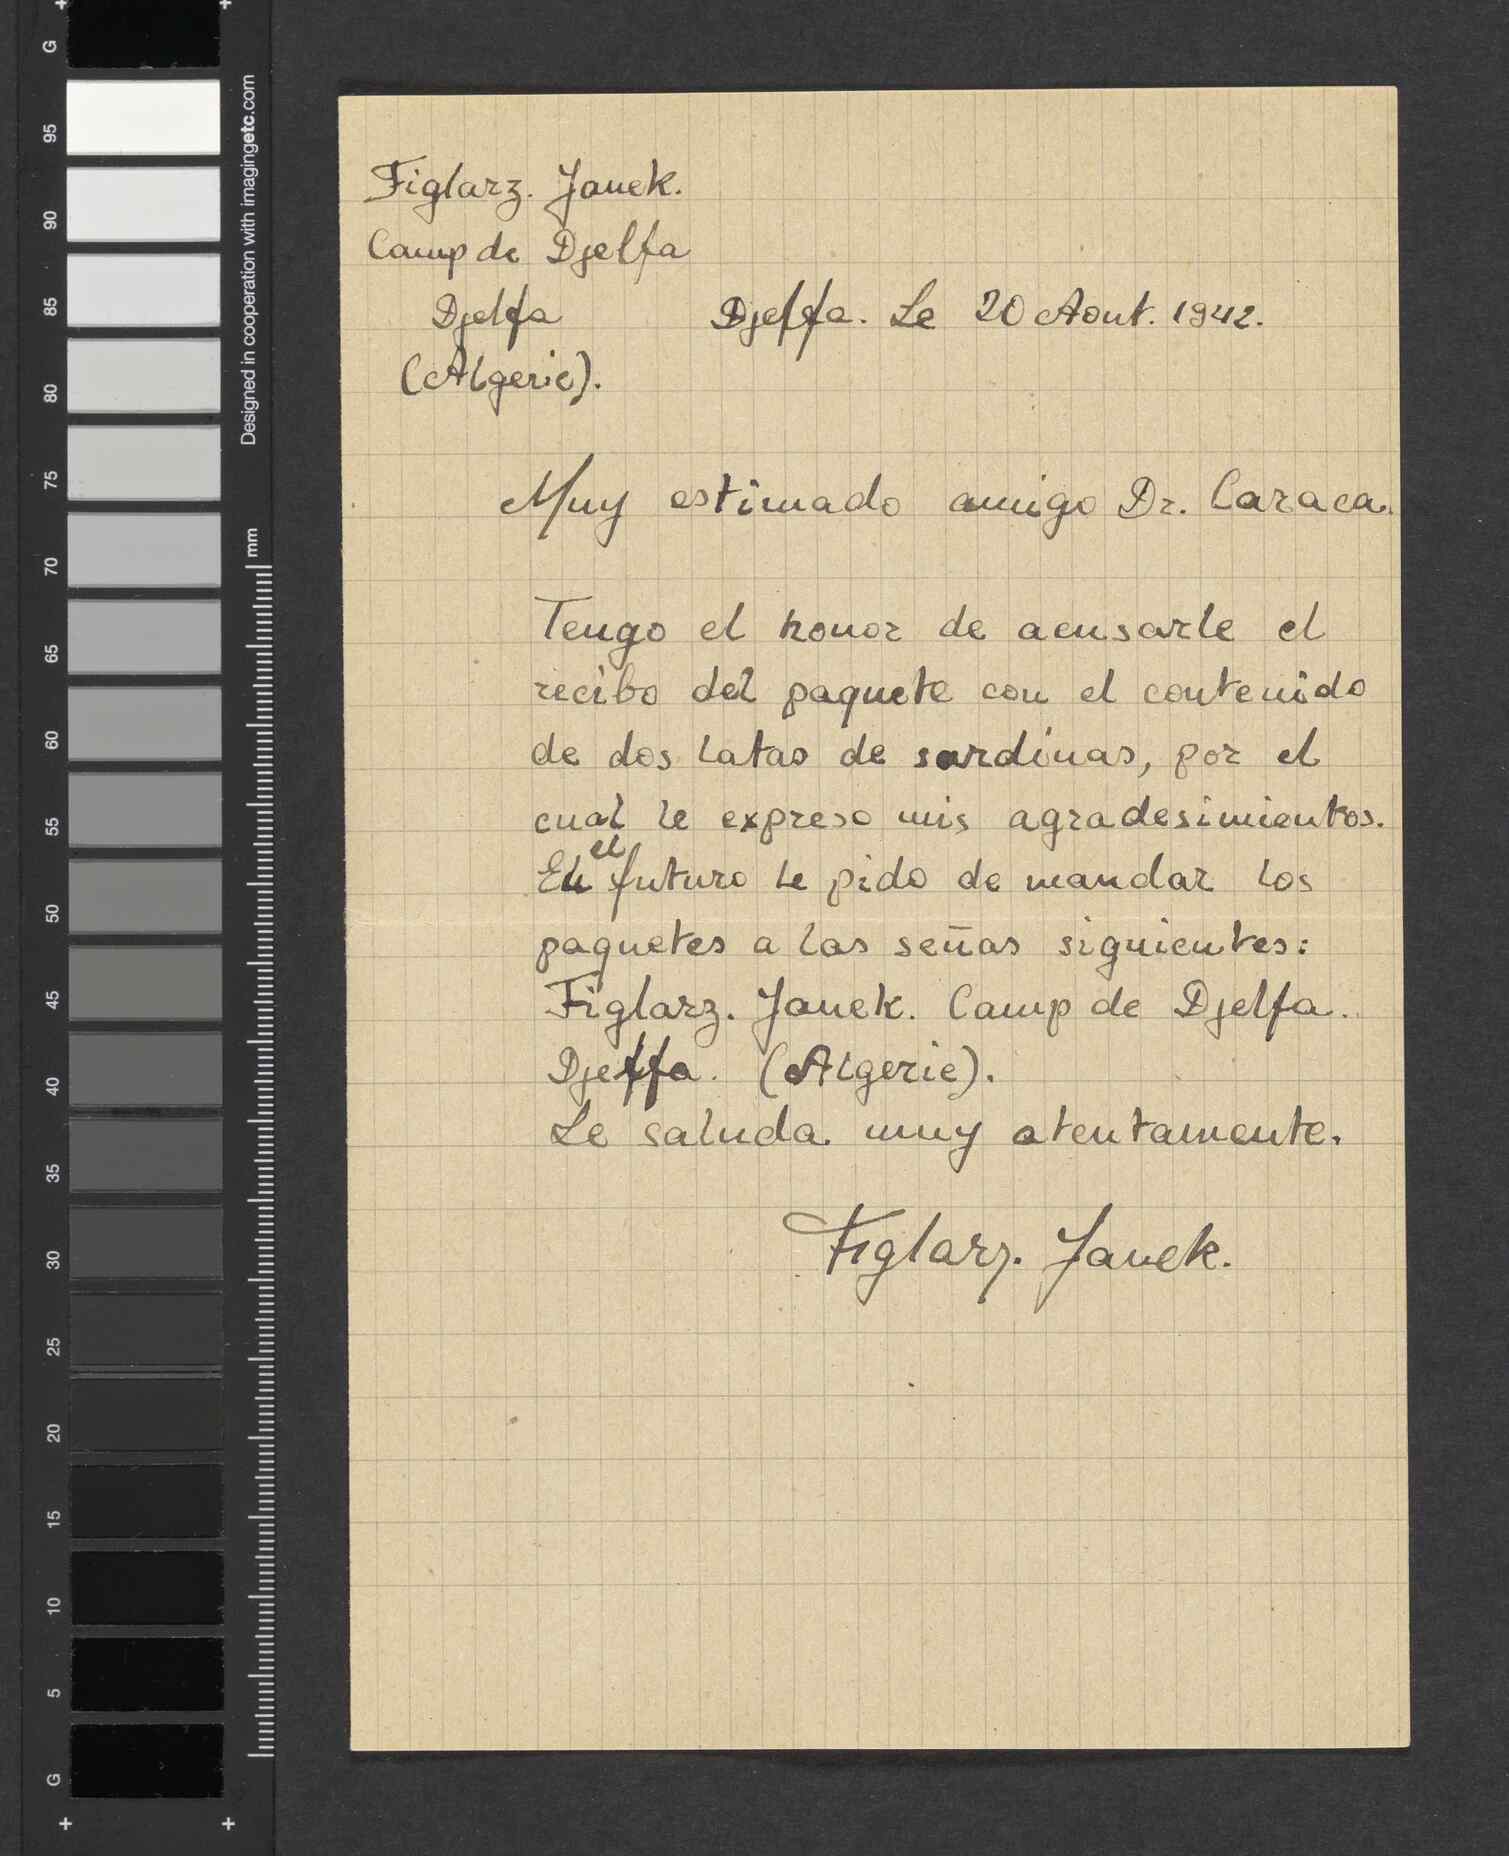 Figlarz. Janek.
Camp de Djelfa
Djelfa
(Algerie).
Djelfa. Le 20 Aout. 1942.
Muy estimado amigo Dr. Caraca.
Tengo el honor de acusarle el
recibo del paquete con el contenido
de dos latas de sardinas, por el
cual le expreso mis agradesimientos.
En el futuro le pido de mandar los
paquetes a las señas siguientes:
Figlarz. Janek. Camp de Djelfa.
Djelfa. (Algerie).
Le saluda muy atentamente.
Figlarz. Janek.
G
95
90
85
80
75
70
65
60
55
50
45
40
35
30
25
20
15
10
5
G
Designed in cooperation with imagingetc.com
mm